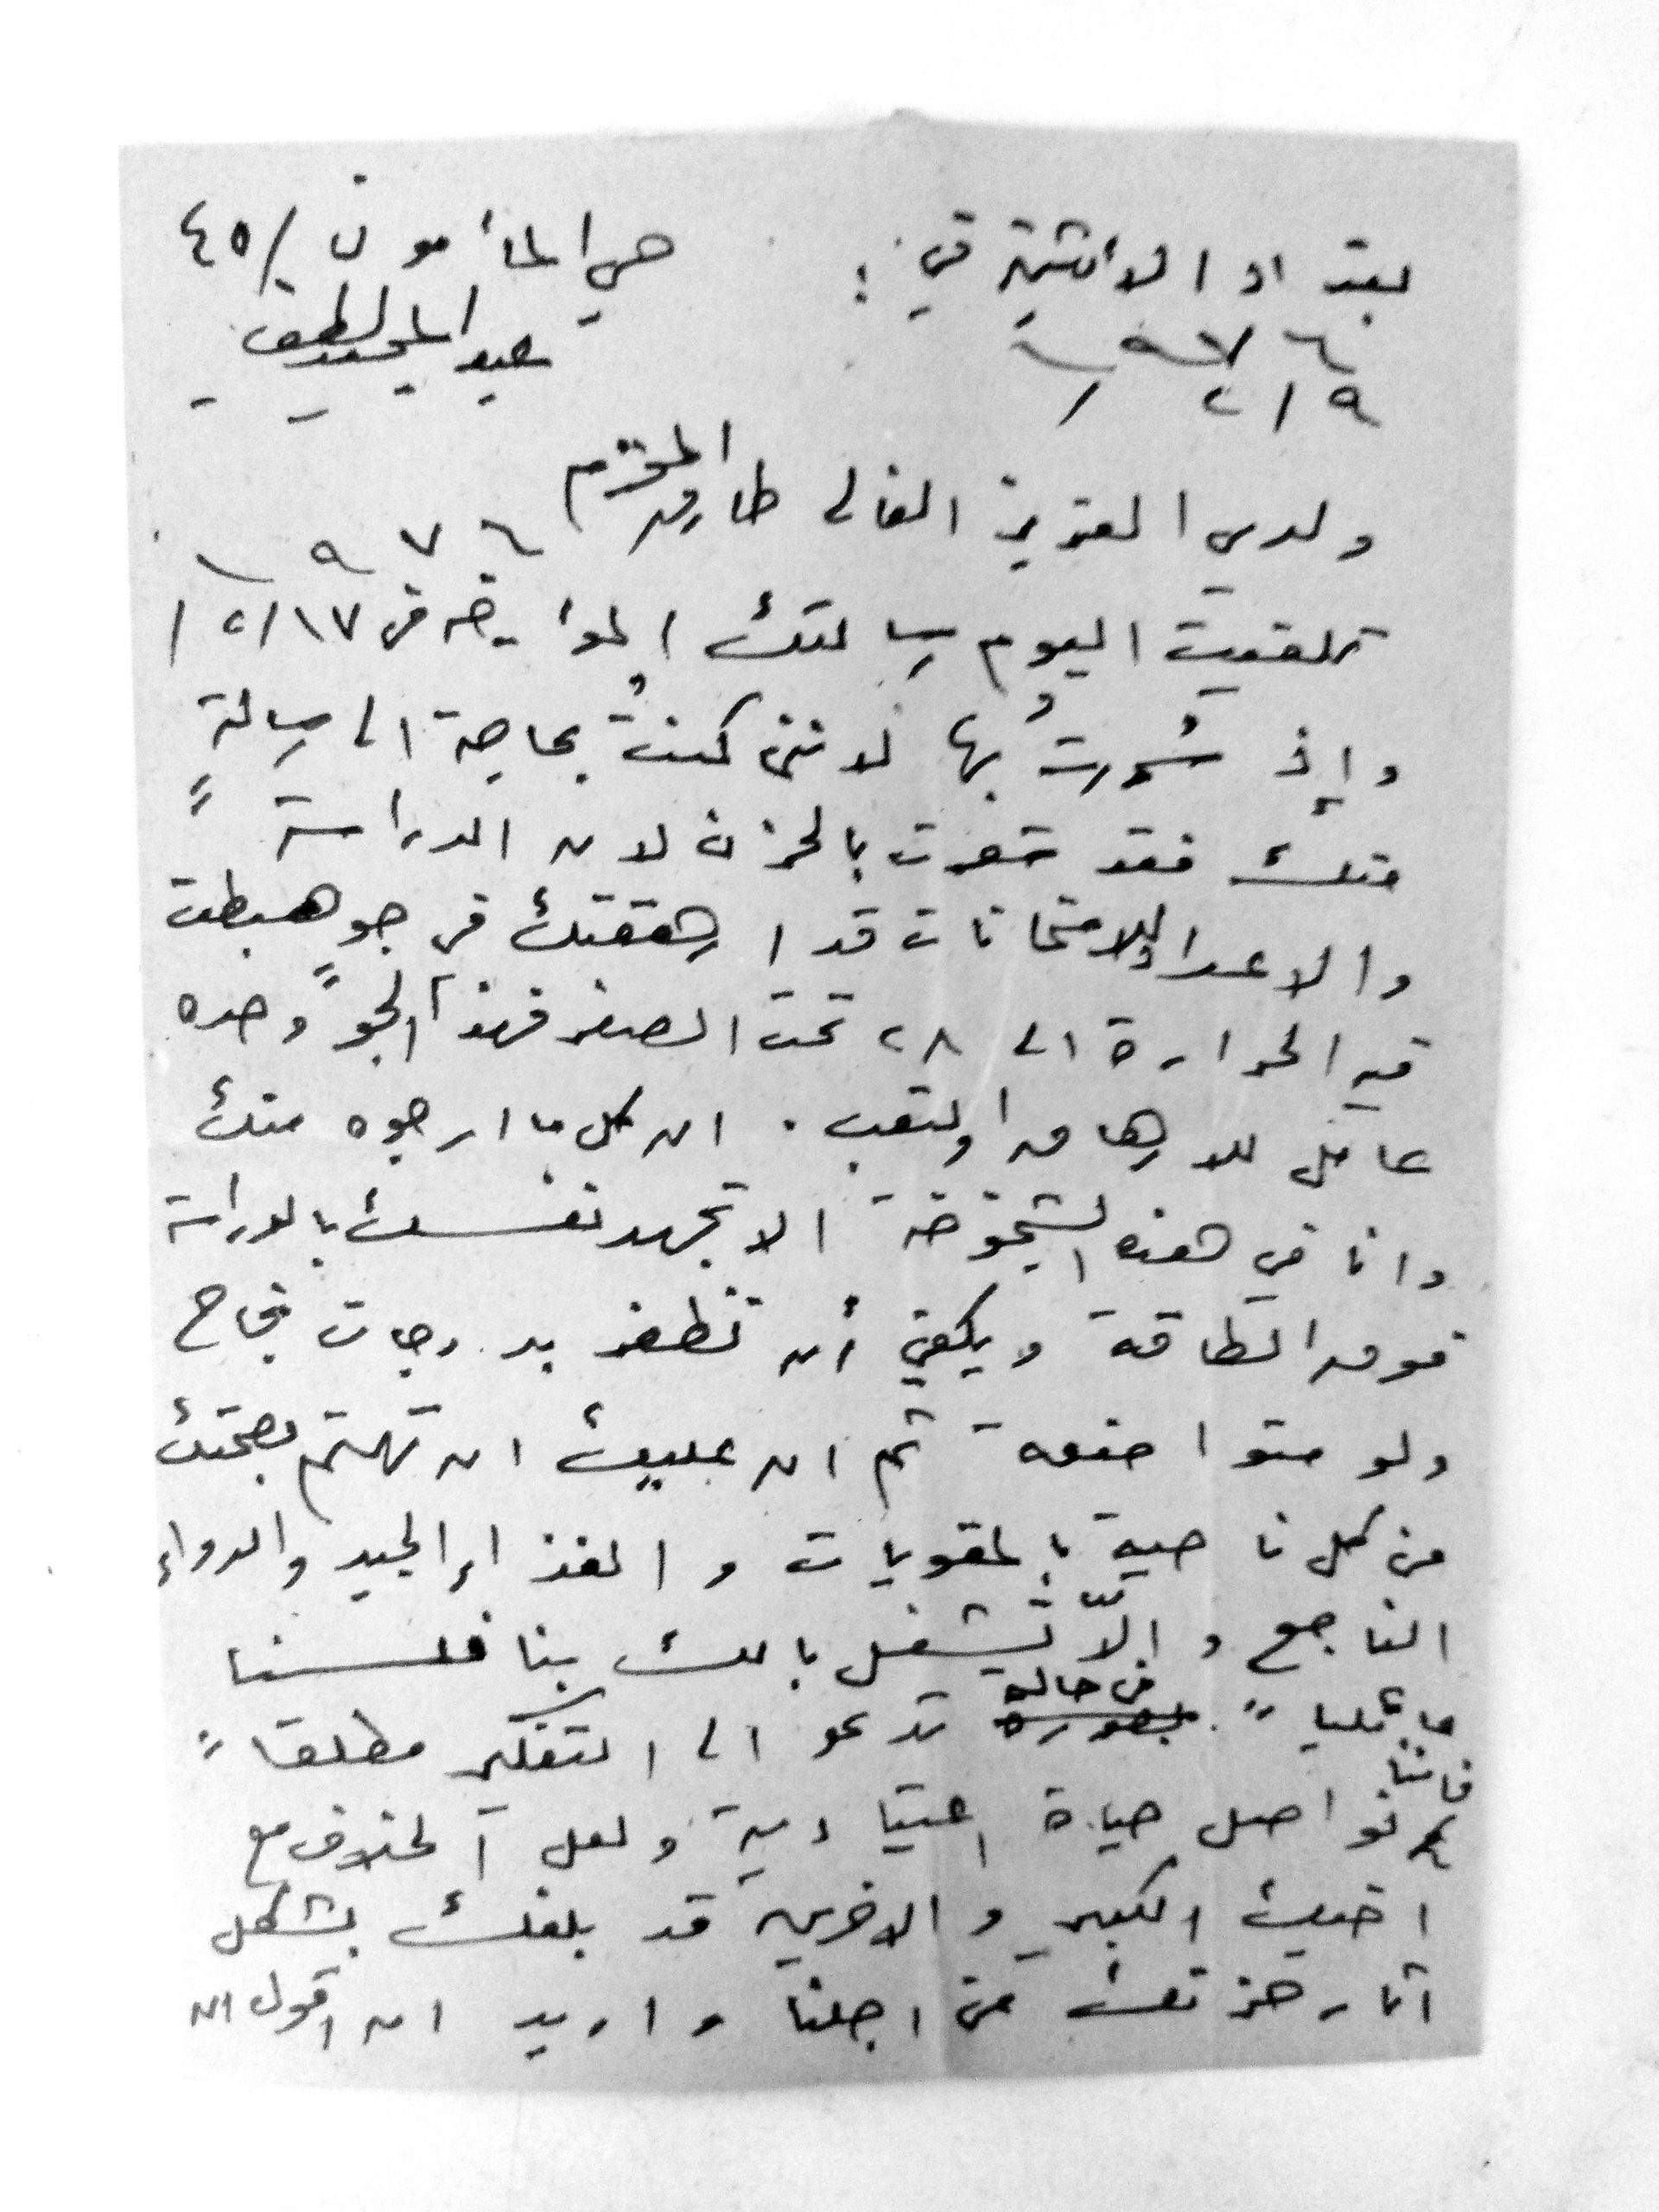 بغداد الاثنين في: حي المأمون / ٤٥
١٩٧٦ عبد المجيد لطفي
٢/٩ /
ولدي العزيز الغالي طارق المحترم
١٩٧٦
تلقيت اليوم رسالتك المؤرخة في ١٧/١ /
وإذ سُررتُ بها لانني كنتُ بحاجة الى رسالةٍ
منك فقد شعرت بالحزن لان الدراسة
والاعداد للامتحانات قد ارهقتك في جو هبطت
فيه الحرارة الى ٢٨ تحت الصفر فهذا الجو وحده
عامل للارهاق والتعب . ان كل ما ارجوه منك
وانا في هذه الشيخوخة الا تجهد نفسك بالدراسة
فوق الطاقة ويكفي أن تظفر بدرجات نجاح
ولو متواضعة ثم ان عليك ان تهتم بصحتك
من كل ناحية بالمقويات والغذاء الجيد والدواء
الناجع و الاّ تشغل بالك بنا فلسنا
عائليا" بصورة في حالة تدعو الى التفكير مطلقا"
فاننا نواصل حياة اعتيادية ولعل الخلاف مع
اخيك الكبير والاخرين قد بلغك بشكل
اثار حزنك من اجلنا واريد ان اقول ان